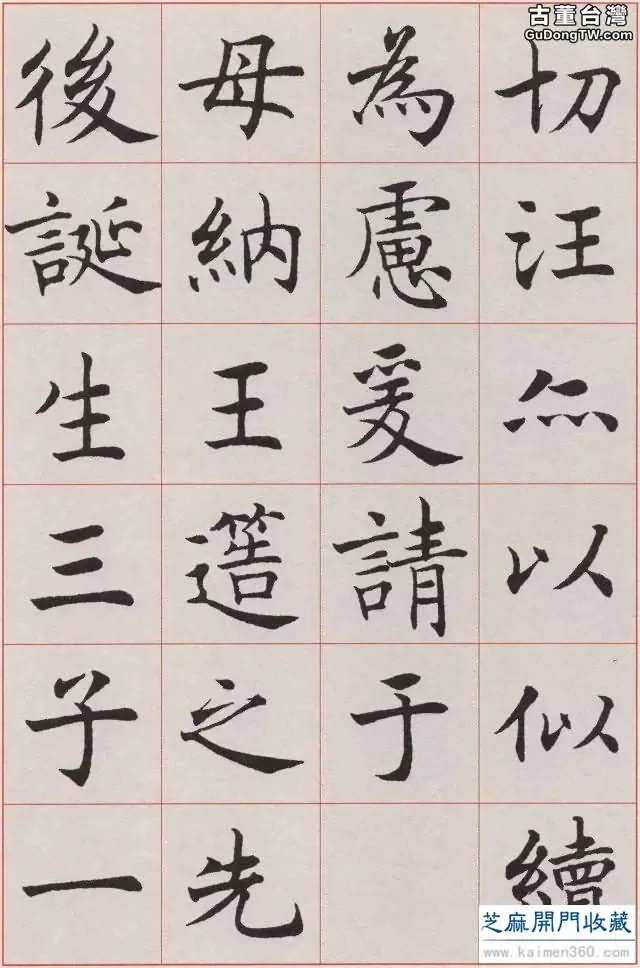 古董台灣
GuDongTW.com
切汪亦以似續
為慮爰請于
母納王簉之先
後誕生三子一
芝麻開門收藏
www.kaimen360.com